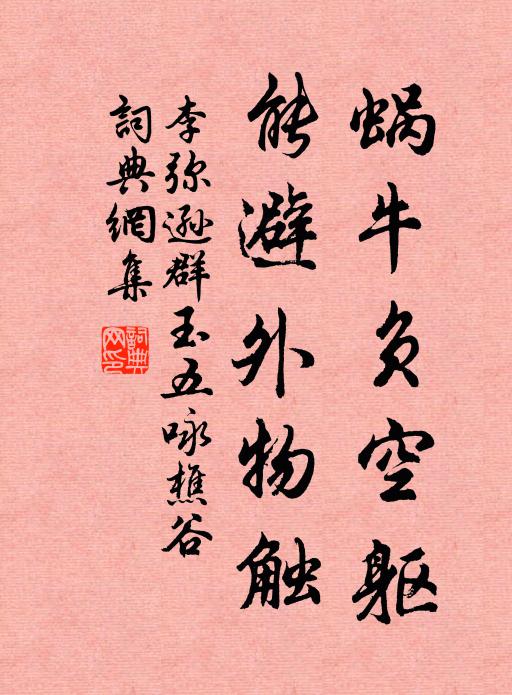 蜗牛负空躯
能避外物触
李弥逊群玉五咏樵谷
詞典網集
詞典
网印